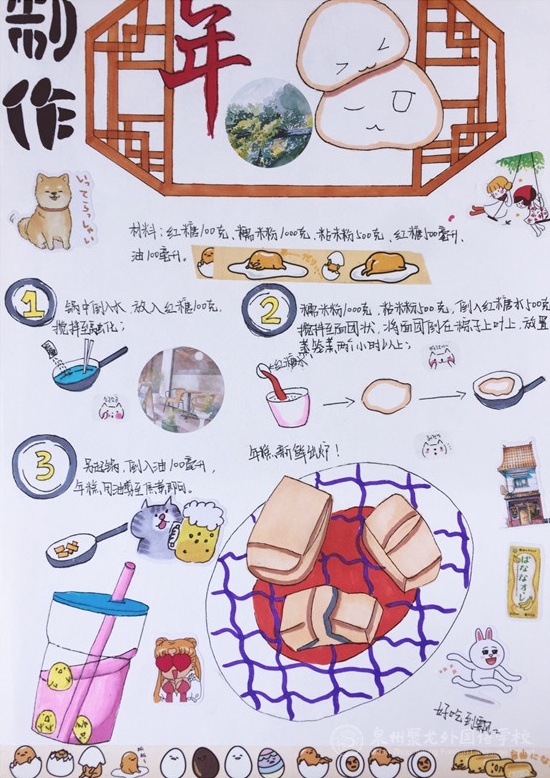 制作
年
いってらっしゃい
材料：红糖100克、糯米粉1000克、粘米粉500克、红糖500毫升、
油100毫升。
1
锅中倒入水，放入红糖100克，
搅拌至融化；
2
糯米粉1000克，粘米粉500克，倒入红糖水500
搅拌至面团状，将面团倒在粽子上叶上，放置
蒸笼蒸两个小时以上；
红糖水
3
另起锅，倒入油100毫升，
年糕用油煎至焦黄即可。
年糕，新鲜出炉！
ばななオ・レ
好吃到飘
泉州聚龙外国语学校